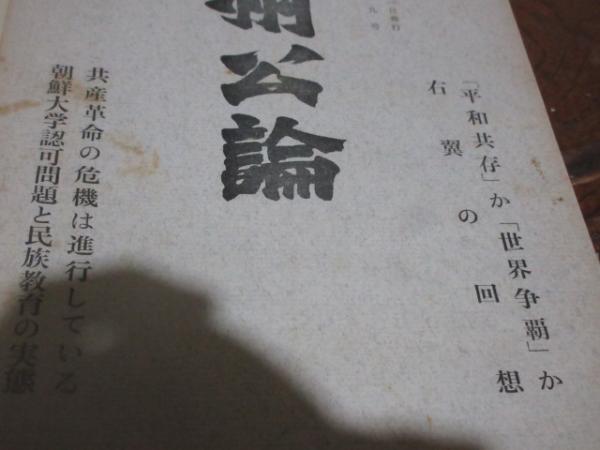 「平和共存」か「世界争覇」か
右翼の回想
公論
共産革命の危機は進行している
朝鮮大学認可問題と民族教育の実態